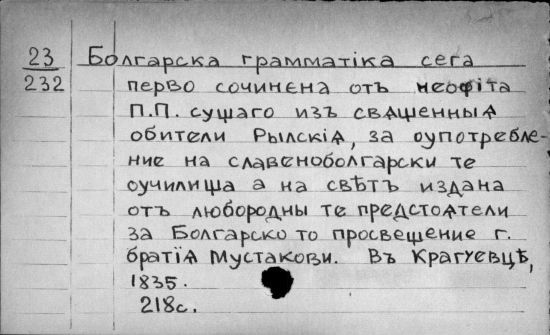 23
232
Болгарска грамматіка сега
перво сочинена отъ неофіта
П.П. сущаго изъ священныѧ
обители Рылскіѧ, за оупотребле-
ние на славеноболгарски те
оучилища а на свѣтъ издана
отъ любородны те предстоѧтели
за Болгарско то просвещение г.
братіѧ Мустакови. Въ Крагуевцѣ,
1835.
218с.